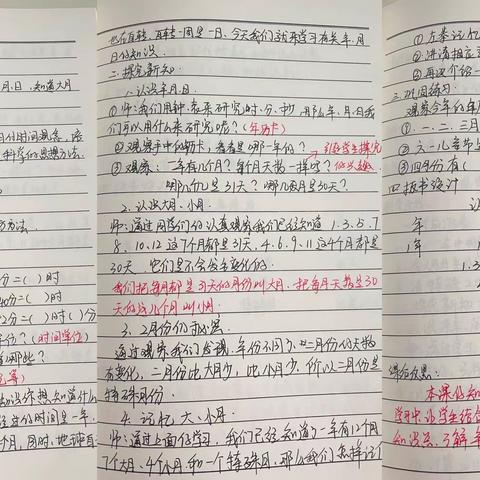 月、日,知道大月
方法.
分=( )时
分=( )时
2分=( )时( )分
(时间单位)
也在自转,自转一周是一日、今天我们就来学习有关年、月
日的知识.
二、探究新知.
1、认识年、月、日.
①师:我们用钟、表来研究时、分、秒,那么年、月、日我
们可以用什么来研究呢?(年历卡)
②观察手中的年历卡,看看是哪一年的?
引起学生探究
的兴趣
③观察:一年有几个月?每个月天数一样吗?
哪几个月是31天?哪几个月是30天?
2、认识大月、小月.
师:通过同学们的认真观察我们已经知道1、3、5、7
8、10、12这7个月都是31天、4、6、9、11这4个月都是
30天,它们是不会发生变化的.
我们把每月都是31天的月份叫大月,把每月天数是30
天的这几个月叫小月.
3、2月份的认识.
通过观察我们发现,年份不同,二月份的天数
有变化,二月份比大月少,比小月少,所以二月份是
特殊月份.
4、记忆大、小月.
师:通过上面的学习,我们已经知道了一年有12个月
7个大月、4个小月和一个特殊月,那么我们怎样记
①左拳记忆
②讲清相应
③再次介绍一
三、巩固练习.
观察今年的年历
①一、二、三月
②六一儿童节
③四月份有(
四、板书设计
年
1年
课后反思:
本课的知
学习中,让学生结合
知识点,了解年